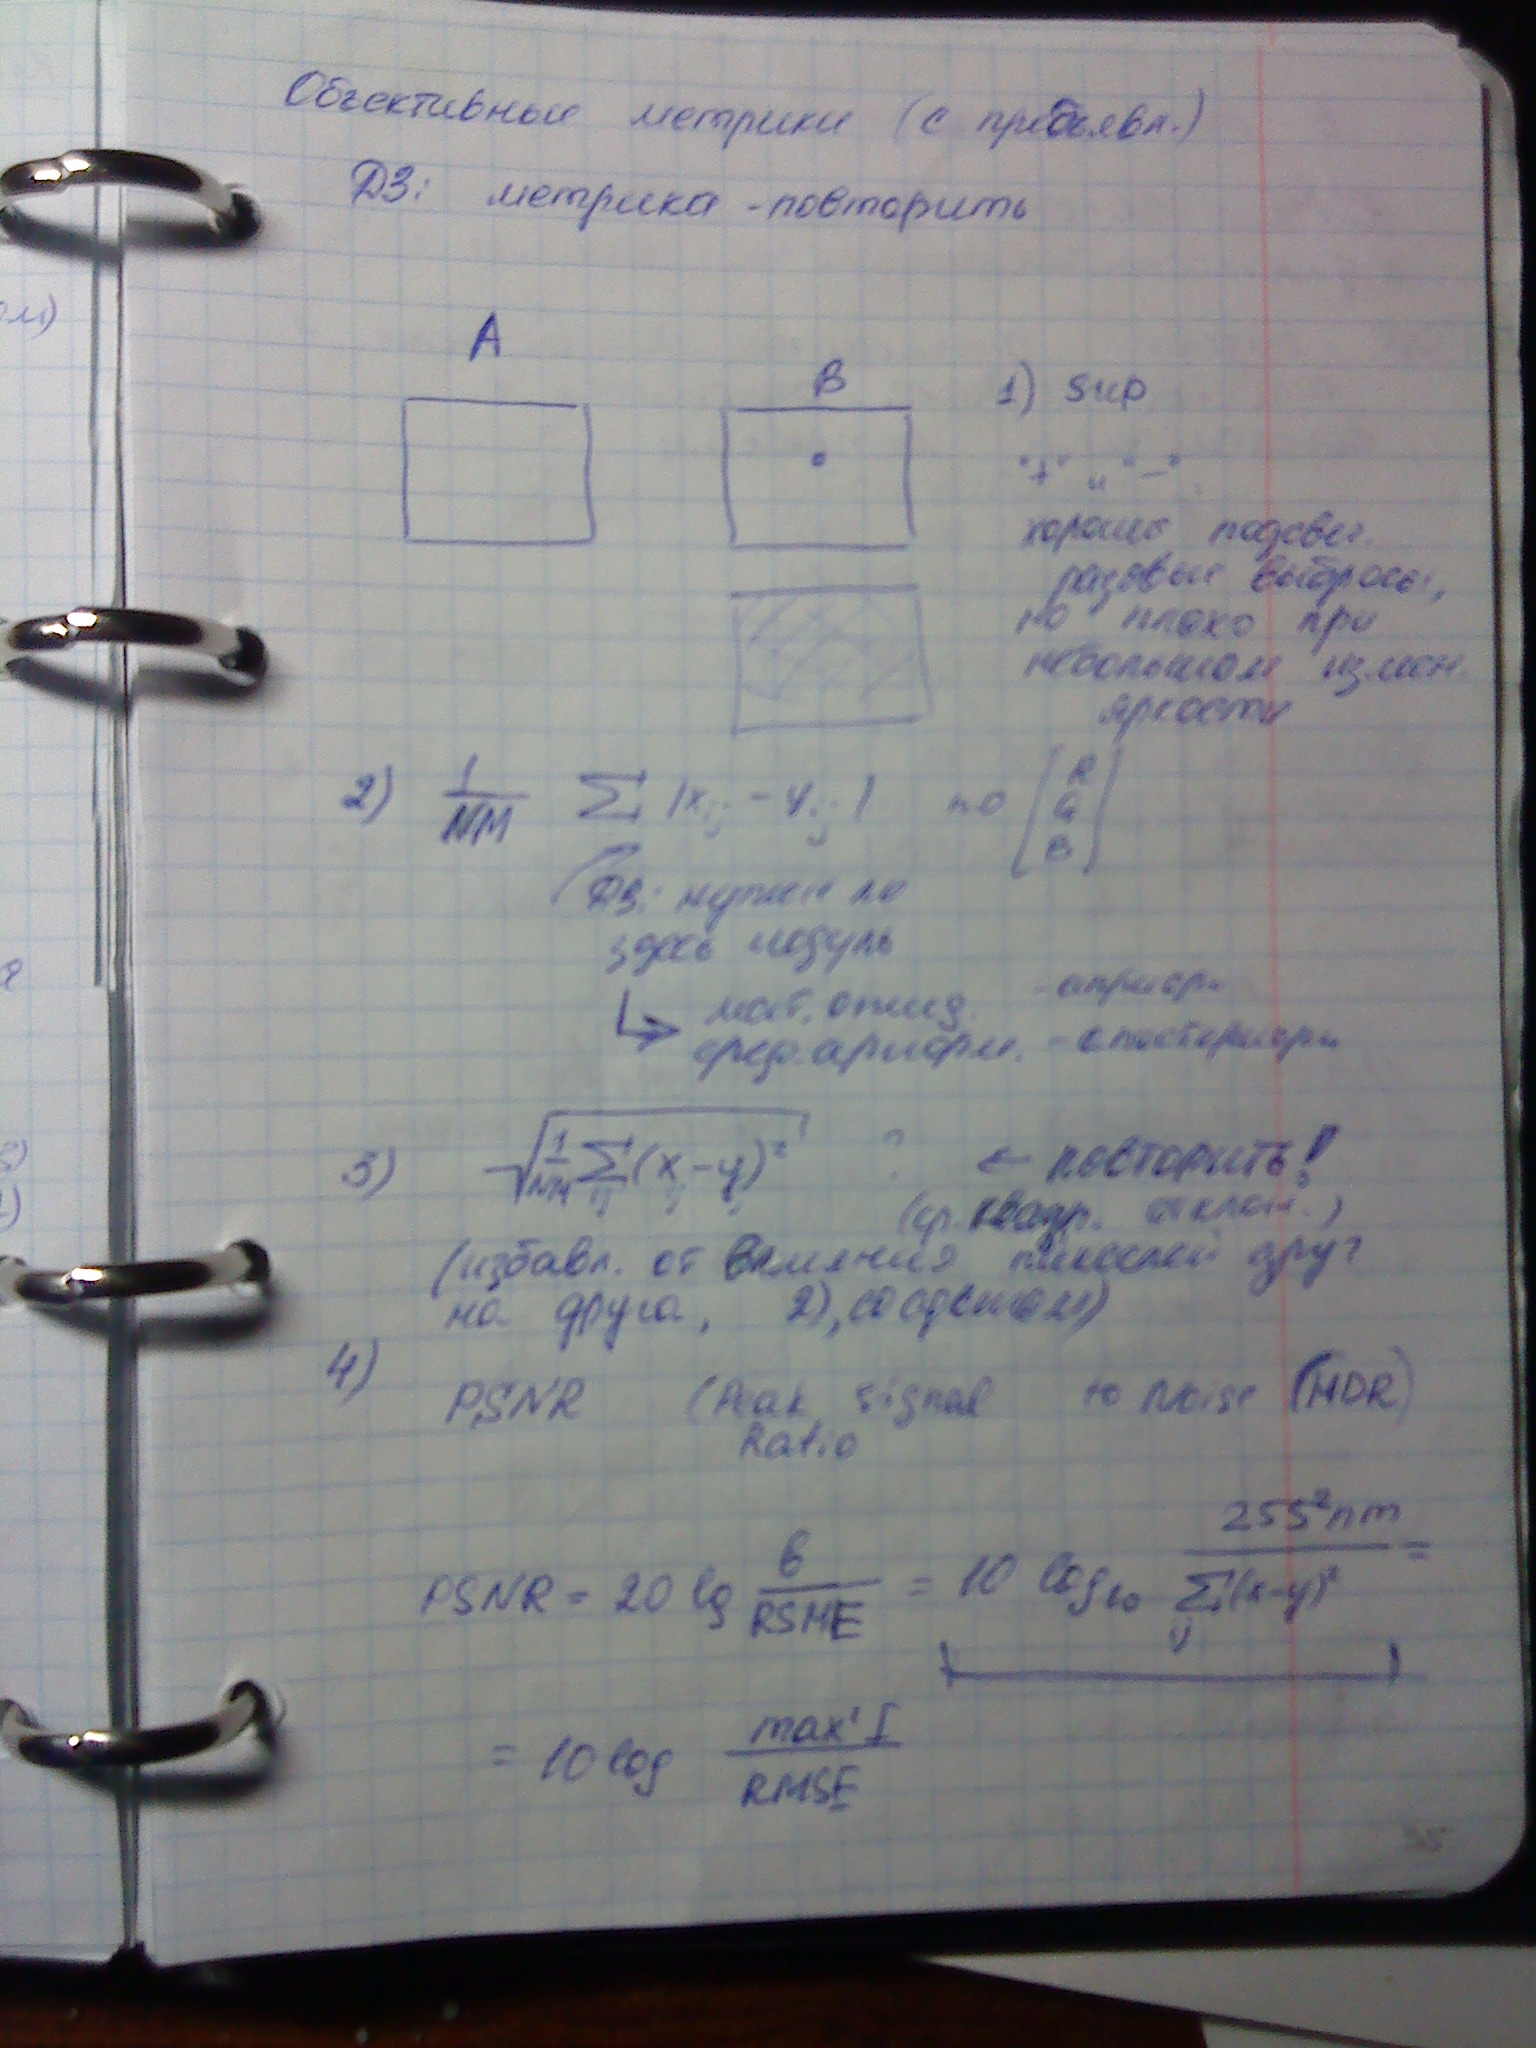 Объективные метрики (с предъявл.)
ДЗ: метрика - повторить
A
B
1) sup
"+" и "-":
хорошо подсвеч.
разовые выбросы,
но плохо при
небольшом измен.
яркости
2) 1/NM ∑ |x_ij - y_ij| по [R G B]
ДЗ: нужен ли
здесь модуль
↳ мат. ожид. - априори
сред. арифм. - апостериори
3) √(1/NM ∑_ij (x_ij - y_ij)²) ? ← повторить!
(ср. квадр. отклон.)
(избавл. от влияния пикселей друг
на друга, 2), со цветом)
4) PSNR (Peak signal to Noise (HDR)
Ratio
PSNR = 20 lg б/RSME = 10 log₁₀ 255²nm/∑_ij(x-y)² =
= 10 log max' I/RMSE
35
ом)
я